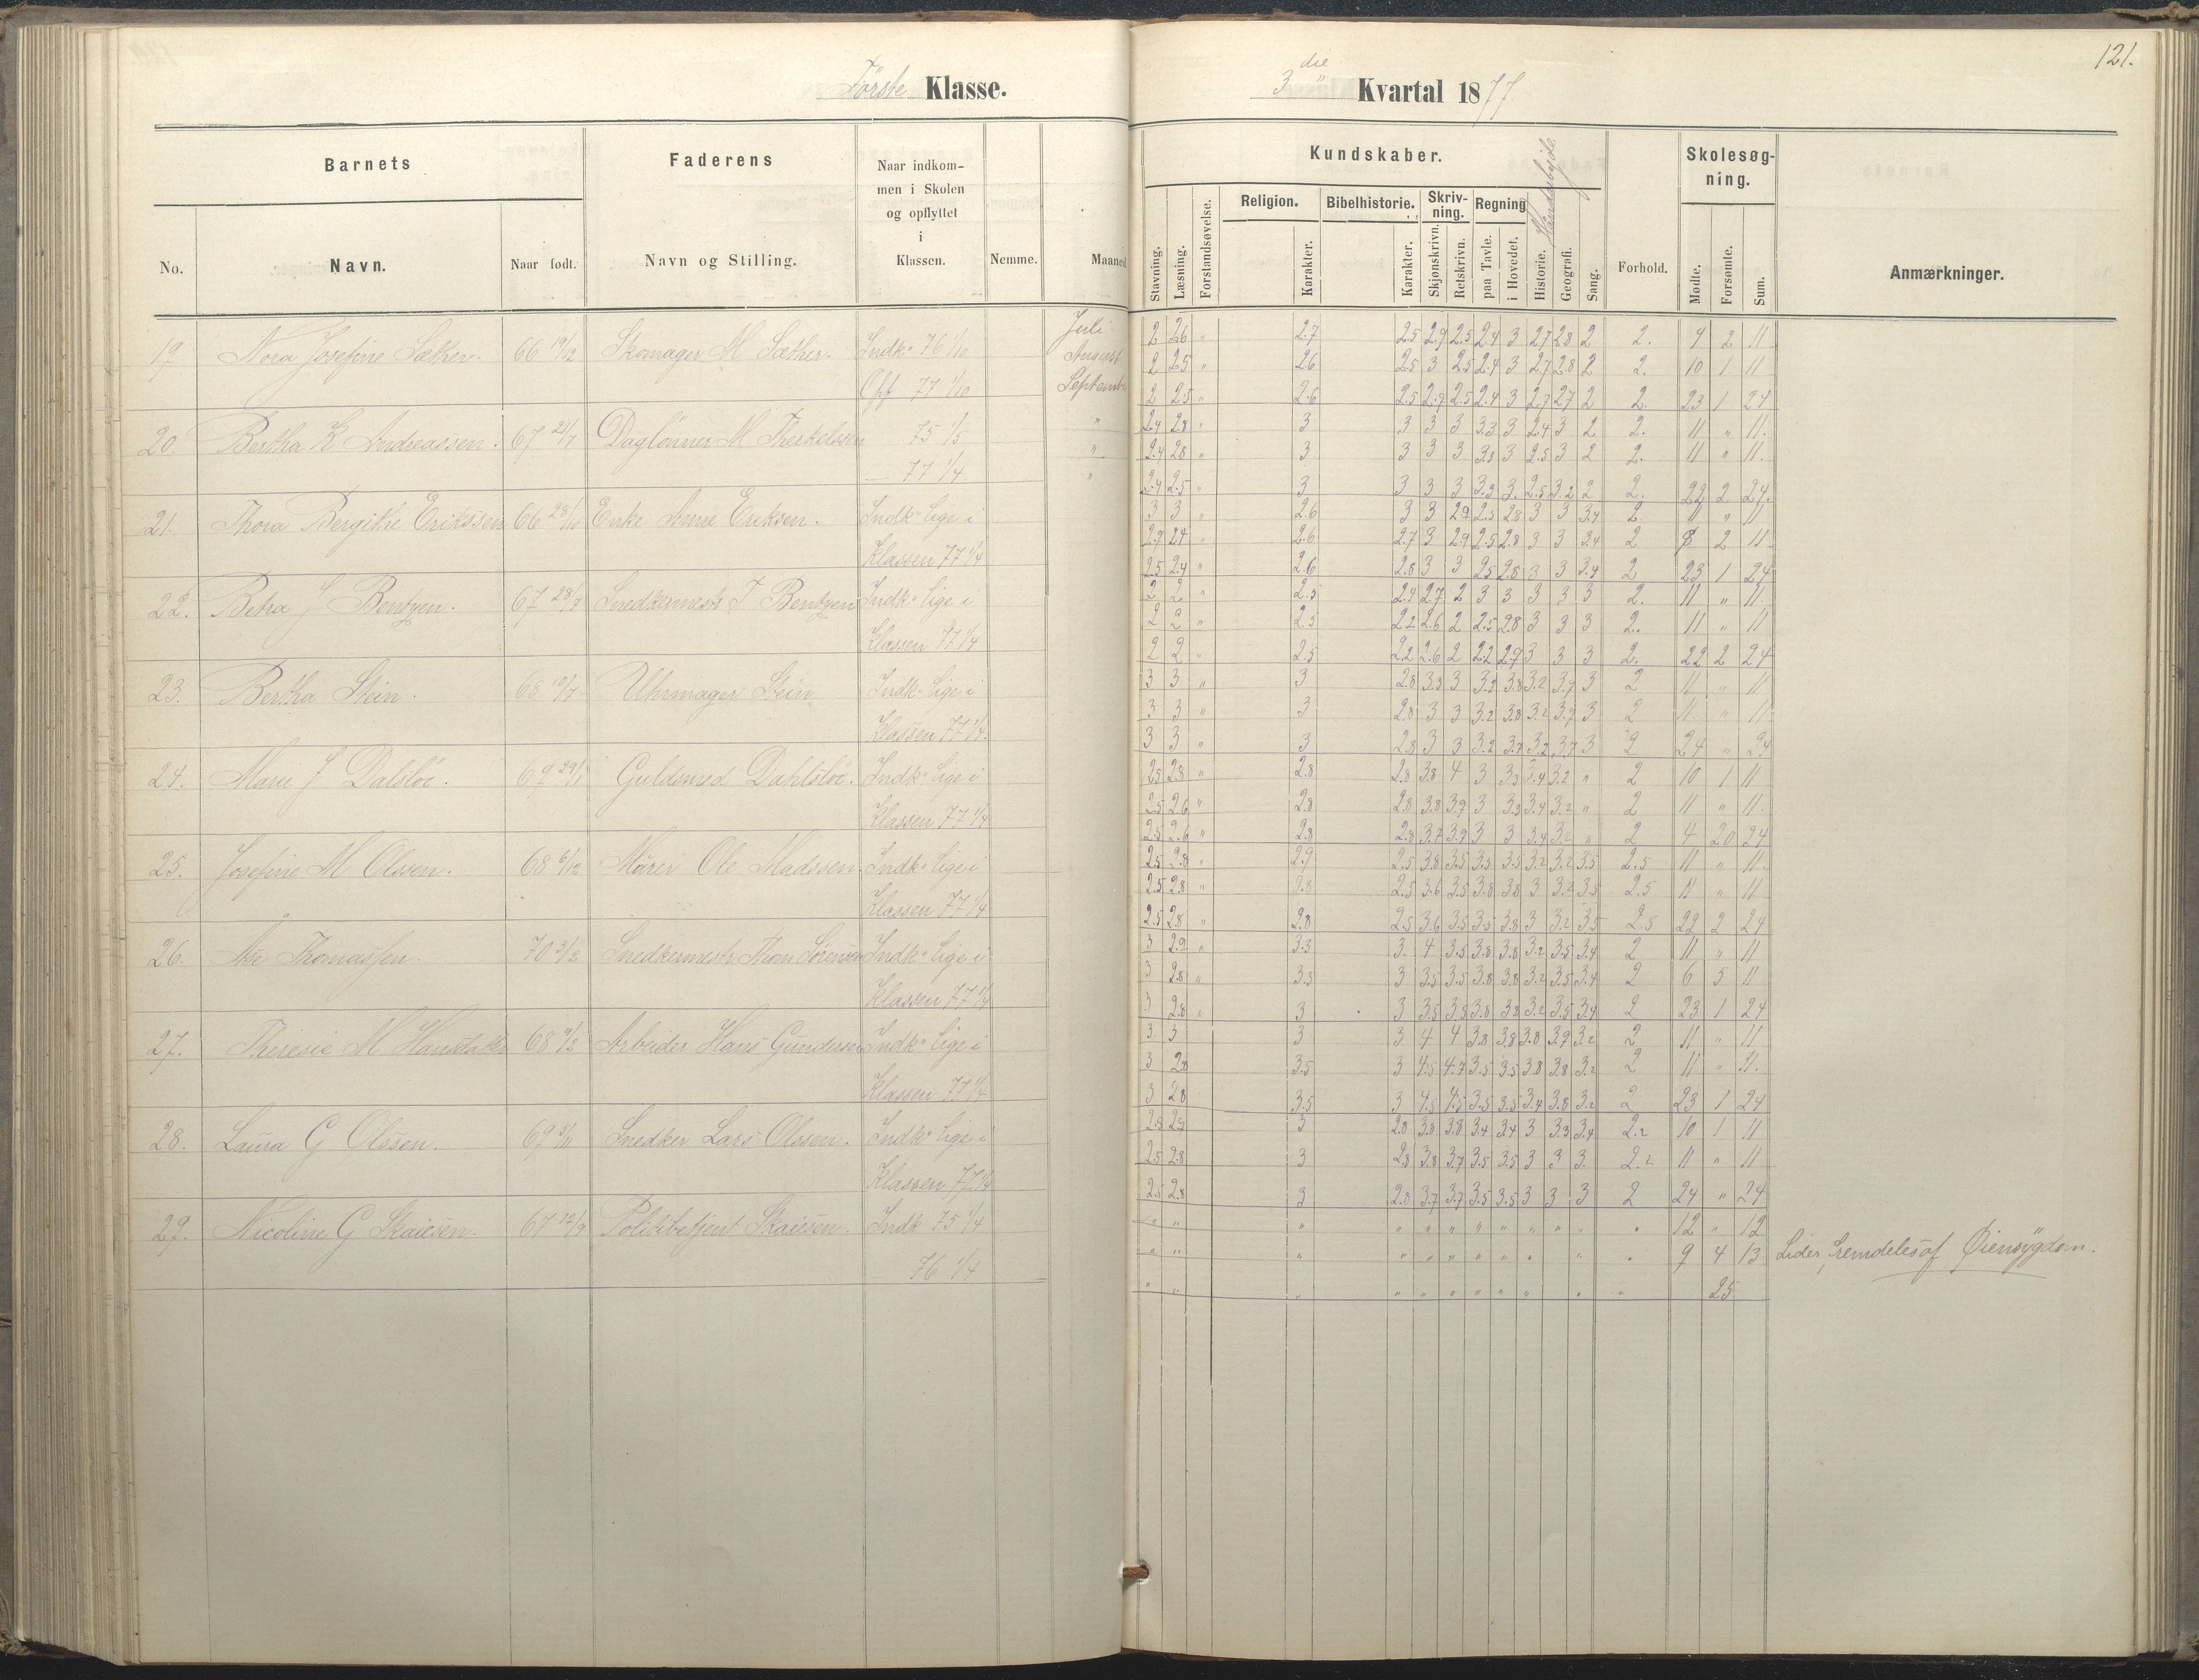 121.
Første Klasse.
3 die Kvartal 1877
Barnets
Faderens
Naar indkom-
men i Skolen
og opflyttet
i
Klassen.
No.
Navn.
Naar født.
Navn og Stilling.
Nemme.
Maaned.
Kundskaber.
Skolesøg-
ning.
Stavning.
Læsning.
Forstandsøvelse.
Religion.
Karakter.
Bibelhistorie.
Karakter.
Skriv-
ning.
Skjønskrivn.
Retskrivn.
Regning
paa Tavle.
i Hovedet.
Historie.
Geografi.
Sang.
Forhold.
Mødte.
Forsømte.
Sum.
Anmærkninger.
19. Nora Josefine Sæther. 66 19/12 Skomager M Sæther. Indk. 76 1/10 Juli
August
Opf 77 1/10 Septemb.
20. Bertha K Andreassen. 67 21/7 Daglönner M Therkelssen 75 1/5 "
"
77 1/4 "
21. Thora Bergithe Erikssen 66 28/10 Enke Anne Eriksen. Indk. lige i
Klassen 77 1/4
22. Betra J Bentzen. 67 28/7 Snedkermestr J Bentzen Indk. lige i
Klassen 77 1/4
23. Bertha Stein. 68 10/7 Uhrmager Stein Indk. lige i
Klassen 77 1/4.
24. Marie J Dalslöe. 69 29/1 Guldsmed Dahlslöe. Indk. lige i
Klassen 77 1/4
25. Josefine M Olssen. 68 6/12 Murer Ole Madssen. Indk. lige i
Klassen 77 1/4
26. Thomassen. 70 3/2 Snedkermestr Thom Sörensen Indk. lige i
Klassen 77 1/4
27. Theresie M 68 9/2 Arbeider Hans Gundersen Indk. lige i
Klassen 77 1/4
28. Laura G Olssen. 69 5/11 Snedker Lars Olssen. Indk. lige i
Klassen 77 1/4
29. Nicoline G Skaiesen. 67 12/9 Politibetjent Skaiesen. Indk 75 1/4
76 1/4
2 2.6 " 2.7 2.5 2.9 2.5 2.4 3 2.7 2.8 2 2. 9 2 11
2 2.5 " 2.6 2.5 3 2.5 2.4 3 2.7 2.8 2 2. 10 1 11
2 2.5 " 2.6 2.5 2.7 2.5 2.4 3 2.7 2.7 2 2. 23 1 24
2.4 2.8 " 3 3 3 3 3.3 3 2.4 3 2 2. 11 " 11.
2.4 2.8 " 3 3 3 3 3.3 3 2.5 3 2 2. 11 " 11.
2.4 2.5 " 3 3 3 3 3.3 3. 2.5 3.2 2 2. 22 2 24.
3 3 " 2.6 3 3 2.9 2.5 2.8 3 3 3.4 2. 11 " 11
2.7 2.4 " 2.6 2.7 3 2.9 2.5 2.8 3 3 3.4 2 2 11
2.5 2.4 " 2.6 2.8 3 3 2.5 2.8 3 3 3.4 2 23 1 24
2 2 " 2.5 2.4 2.7 2 3 3 3 3 3 2. 11 " 11.
2 2 " 2.5 2.2 2.6 2 2.5 2.8 3 3 3 2. 11 " 11
2 2 " 2.5 2.2 2.6 2 2.2 2.9 3 3 3 2. 22 2 24
3 3 " 3 2.8 3.3 3 3.2 3.8 3.2 3.7 3 2 11 " 11
3 3 " 3 2.8 3 3 3.2 3.8 3.2 3.7 3 2 11. " 11
3 3 " 3 2.8 3 3 3.2 3.7 3.2 3.7 3 2 24 " 24
2.5 2.8 " 2.8 2.8 3.8 4 3 3.3 3.4 3.2 " 2 10 1 11
2.5 2.6 " 2.8 2.8 3.8 3.9 3 3.3 3.4 3.2 " 2 11 " 11.
2.5 2.6 " 2.8 2.8 3.7 3.9 3 3 3.4 3.2 " 2 4 20 24
2.5 2.8 " 2.9 2.5 3.8 3.5 3.5 3.5 3.2 3.2 3.5 2.5 11 " 11.
2.5 2.8 " 2.8 2.5 3.6 3.5 3.8 3.8 3 3.2 3.5 2.5 11 " 11
2.5 2.8 " 2.8 2.5 3.6 3.5 3.5 3.8 3 3.2 3.5 2.5 22 2 24
3 2.9 " 3.3 3. 4 3.5 3.8 3.8 3.2 3.5 3.4 2 11 " 11
3 2.8 " 3.3 3 3.5 3.5 3.8 3.8 3.2 3.5 3.4 2 6 5 11
3 2.8 " 3 3 3.5 3.5 3.8 3.8 3.2 3.5 3.4 2 23 1 24
3 3 3 3 4 4 3.8 3.8 3.8 3.9 3.2 2 11 " 11
3 2.8 3.5 3 4.5 4.7 3.5 3.5 3.8 3.8 3.2 2 11 " 11.
3 2.8 3.5 3 4.5 4.5 3.5 3.5 3.4 3.8 3.2 2 23 1 24
2.8 2.9 3 2.8 3.8 3.8 3.4 3.4 3 3.3 3.4 2.2 10 1 11
2.5 2.8 3 2.8 3.8 3.7 3.5 3.5 3 3 3. 2.2 11 " 11
2.5 2.8 3 2.8 3.7 3.7 3.5 3.5 3 3 3 2 24 " 24
" " " " " " " " " " " " 12 " 12
" " " " " " " " " " " 9 4 13 Lider fremdeles af Öiensÿgdom.
" " " " " " " " " " " 25
Haandarbejde